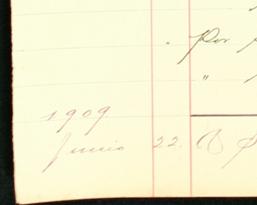 Por
"
1909
Junio 22.